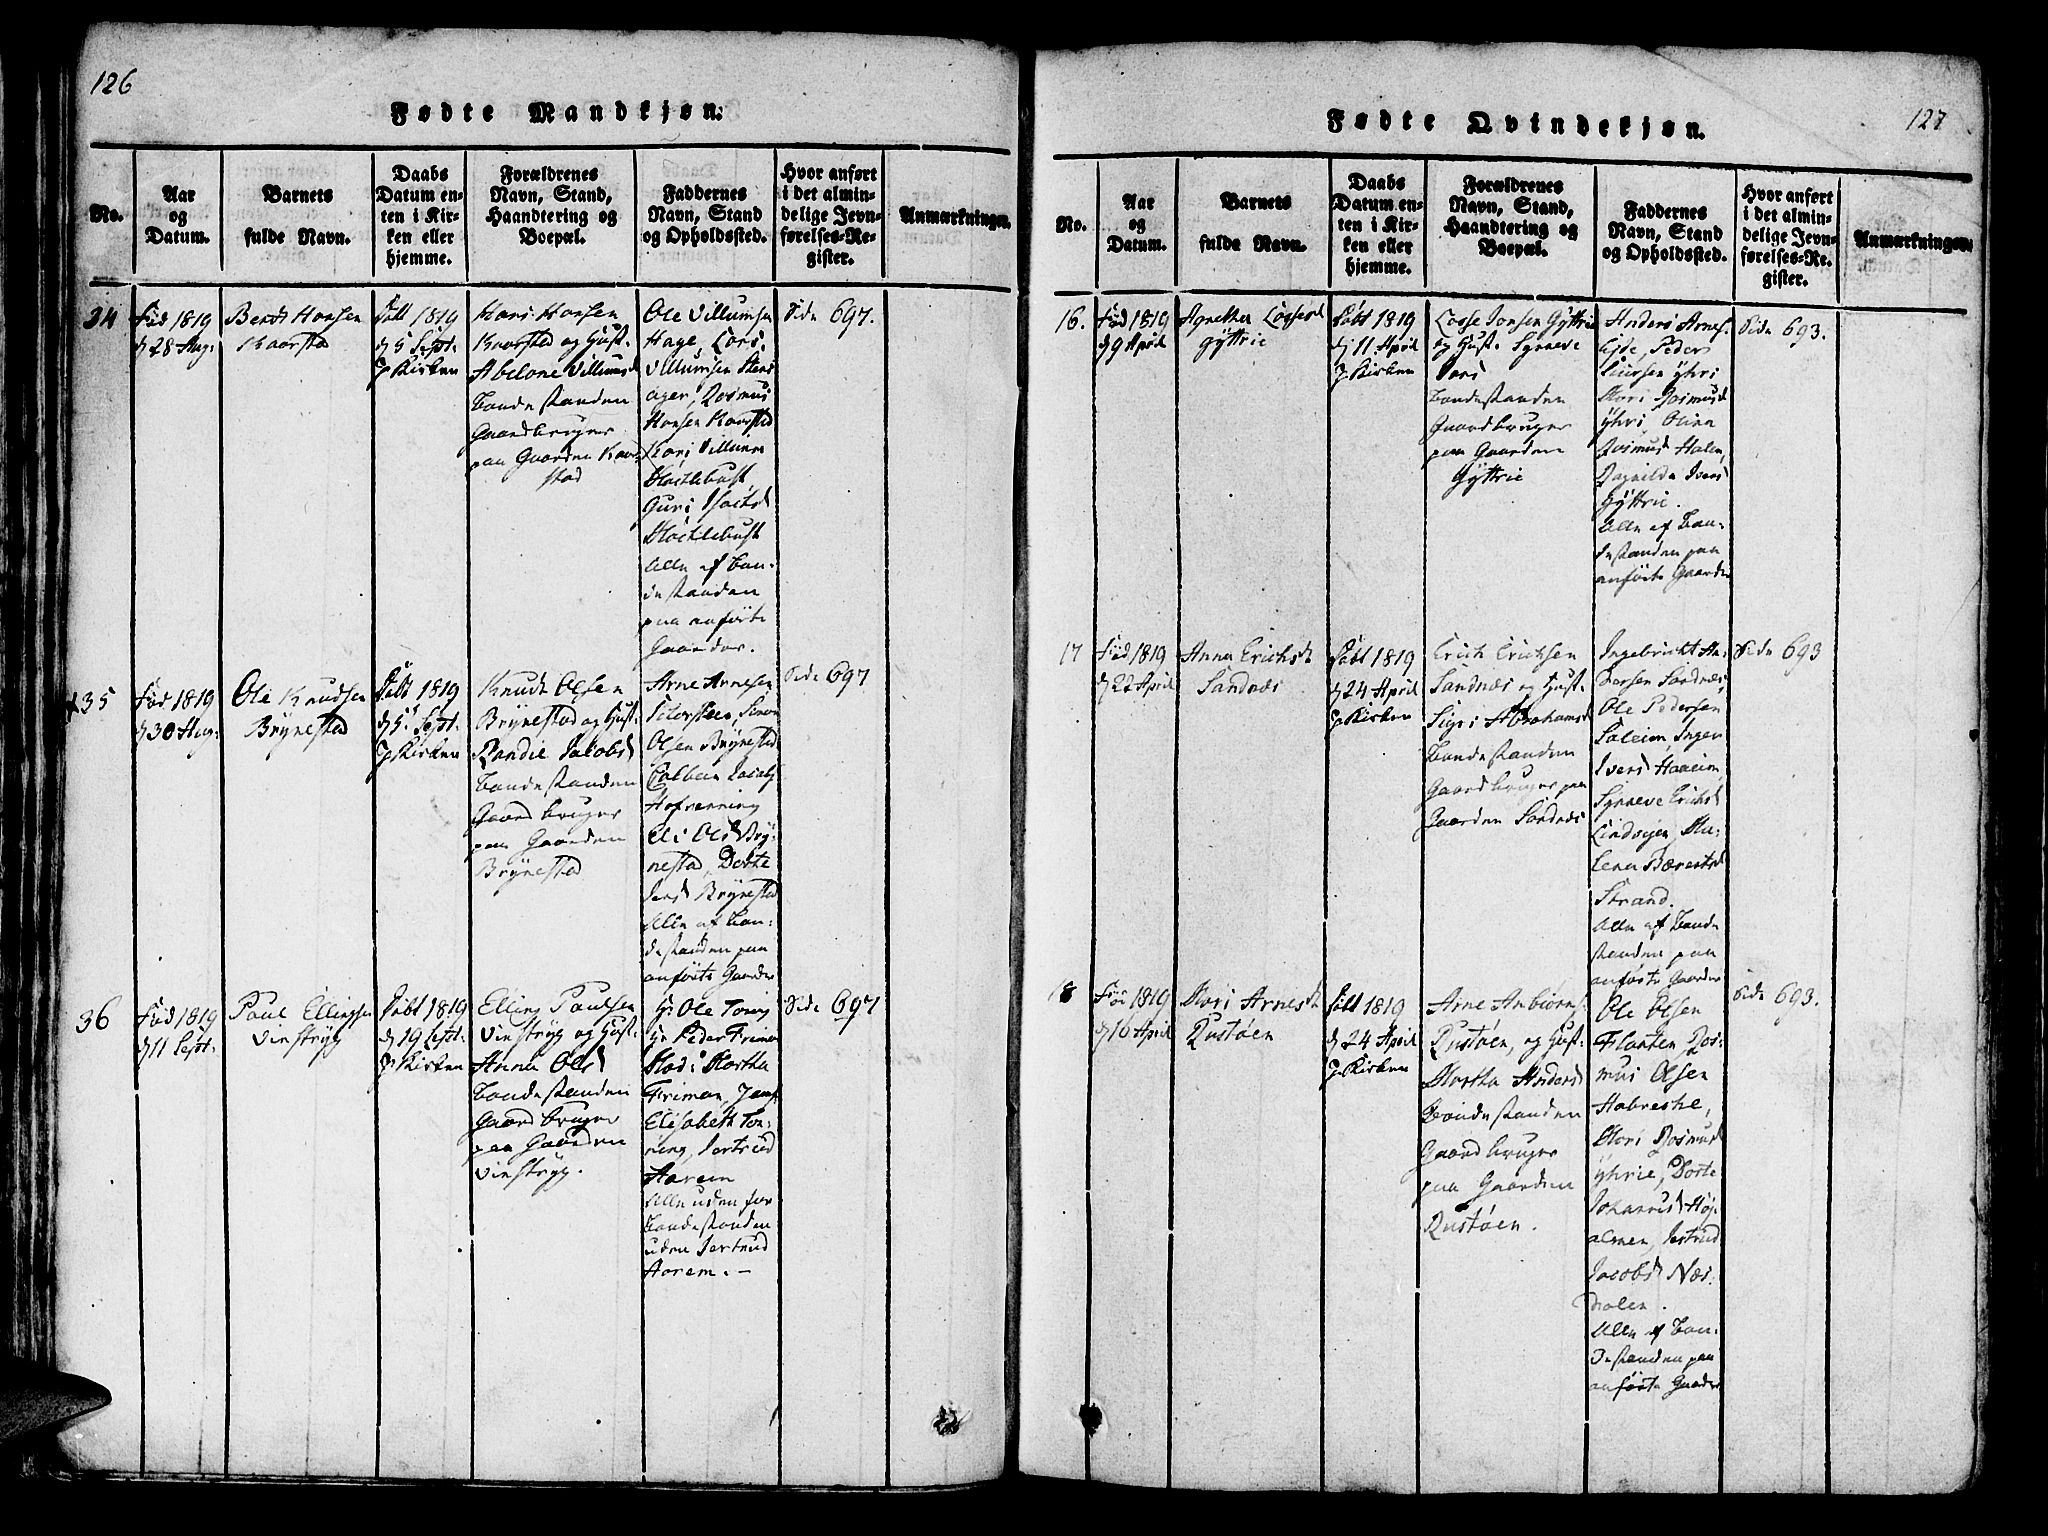 126
Fødte Mandkjøn.
No.
Aar
og
Datum.
Barnets
fulde Navn.
Daabs
Datum en-
ten i Kir-
ken eller
hjemme.
Forældrenes
Navn, Stand,
Haandtering og
Boepæl.
Faddernes
Navn, Stand
og Opholdssted.
Hvor anført
i det almin-
delige Jevn-
førelses-Re-
gister.
Anmærkninger.
34
Fød 1819
d 28 Aug:
Bernt Hansen
Kaarstad
Døbt 1819
d 5 Sept.
J Kirken
Hans Hansen
Kaarstad og Hust.
Abelone Villumsd
Bondestanden
Gaardbruger
paa Gaarden Kaar-
stad
Ole Villumsen
Hage, Lars
Villumsen
ager, Rasmus
Hansen Kaarstad
Kari Villums
Guri
Alle af Bon-
destanden
paa anførte
Gaarder.
Side 697.
35
Fød 1819
d 30 Aug:
Ole Knudsen
Brynestad
Døbt 1819
d 5 Sept.
J Kirken
Knudt Olsen
Brynestad og Hust.
Randie Jakobsd
Bondestanden
Gaardbruger
paa Gaarden
Brynestad
Arne Arnesen
Olsen Brynestad
Eli Olsd Bry-
nestad, Dorte
Brynestad
Alle af Bon-
destanden paa
anførte Gaarder
Side 697
36
Fød 1819
d 11 Sept.
Paul Ellingsen
Vinstryg
Døbt 1819
d 19 Sept.
J Kirken
Elling Paulsen
Vinstryg og Hust.
Anna Olsd
Bondestanden
Gaardbruger
paa Gaarden
Vinstryg.
Hr Ole Toning
Hr Peder Friman
Mad: Martha
Friman, Jomf
Elisabeth Ton-
ning, Jertrud
Aarem
Alle uden for
Bondestanden
uden Jertrud
Aarem. —
Side 697
127
Fødte Qvindekjøn.
No.
Aar
og
Datum.
Barnets
fulde Navn.
Daabs
Datum en-
ten i Kir-
ken eller
hjemme.
Forældrenes
Navn, Stand,
Haandtering og
Boepæl.
Faddernes
Navn, Stand
og Opholdssted.
Hvor anført
i det almin-
delige Jevn-
førelses-Re-
gister.
Anmærkninger.
16.
Fød 1819
d 9 April
Agnethe Lassesd
Gyttrie
Døbt 1819
d 11 April
J Kirken
Lasse Jonsen Gyttrie
og Hust. Synneve
Lars
Bondestanden
Gaardbruger
paa Gaarden
Gyttrie
Anders Arnes.
Peder
Yhri
Mari Rasmusd
Yhri, Olina
Rasmusd Halen,
Ragnilda Ivers
Gyttrie.
Alle af Bon-
destanden paa
anførte Gaarder
Side 693.
17
Fød 1819
d 22 April
Anna Erichsd
Sandnæs
Døbt 1819
d 24 April
J Kirken
Erich Erichsen
Sandnæs og Hust.
Sigri Abrahamsd
Bondestanden
Gaardbruger paa
Gaarden Sandnæs
Ingebricht An-
dersen Sandnæs
Ole Pedersen
Soleim, Inger
Ivers Haaeim,
Synneve Erichsd
Lindvigen, Ma-
lena
Strand.
Alle af Bonde
standen paa
anførte Gaarder
Side 693
18
Fød 1819
d 16 April
Mari Arnesd
Rustøen
Døbt 1819
d 24 April
J Kirken
Arne Anbiørns.
Rustøen, og Hust.
Martha Andersd
Bondestanden
Gaardbruger
paa Gaarden
Rustøen.
Ole Olsen
Flaaten, Ras-
mus Olsen
Habreske,
Mari Rasmusd
Yhrie, Dorte
Johannisd Høj-
almen, Jertrud
Jacobsd Næs-
dalen.
Alle af Bon-
destanden paa
anførte Gaarder
Side 693.